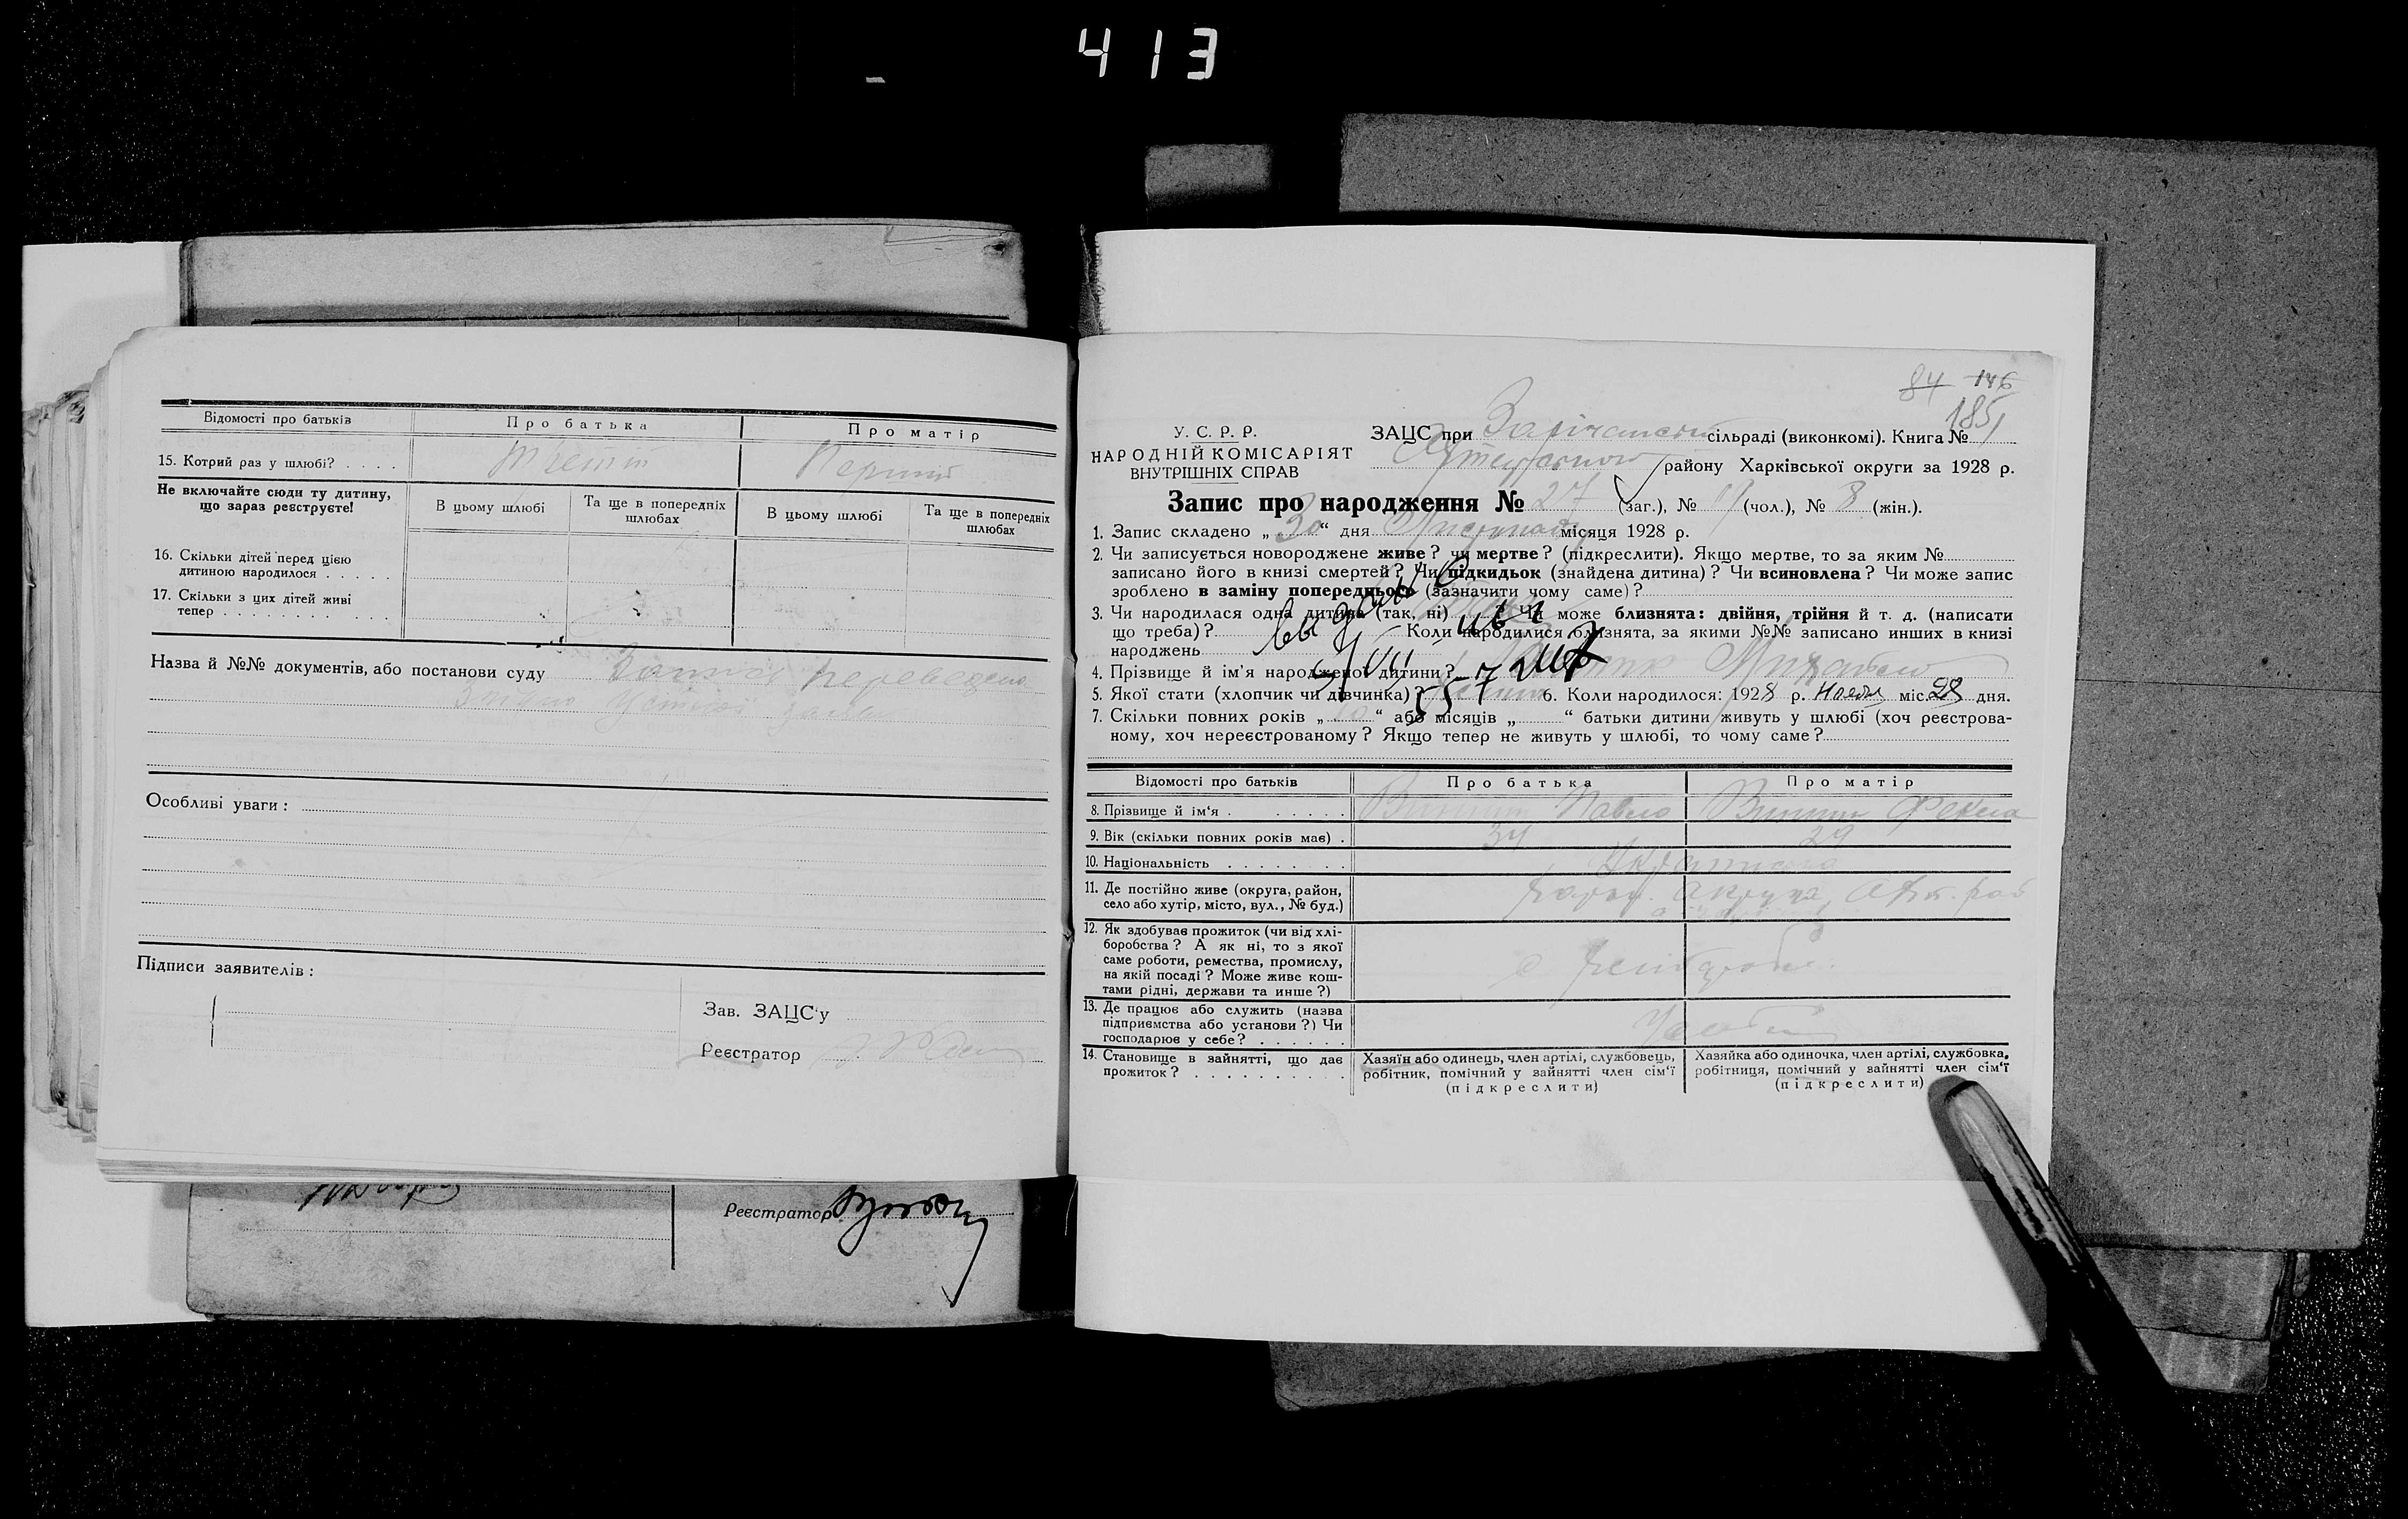 413
Відомості про батьків
Про батька
Про матір
15. Котрий раз у шлюбі? . . . .
Третій
Перший
Не включайте сюди ту дитину,
що зараз реєструєте!
В цьому шлюбі
Та ще в попередніх
шлюбах
В цьому шлюбі
Та ще в попередніх
шлюбах
16. Скільки дітей перед цією
дитиною народилося . . . . .
17. Скільки з цих дітей живі
тепер . . . . . . . . . . .
Назва й №№ документів, або постанови суду
Особливі уваги:
Підписи заявителів:
Зав. ЗАЦС'у
Реєстратор
Реєстратор
84 146
1851
У. С. Р. Р.
НАРОДНІЙ КОМІСАРІЯТ
ВНУТРІШНІХ СПРАВ
ЗАЦС при сільраді (виконкомі). Книга №
району Харківської округи за 1928 р.
Запис про народження № 27 (заг.), № (чол.), № 8 (жін.).
1. Запис складено „30“ дня Листопада місяця 1928 р.
2. Чи записується новороджене живе? чи мертве? (підкреслити). Якщо мертве, то за яким №
записано його в книзі смертей? Чи підкидьок (знайдена дитина)? Чи всиновлена? Чи може запис
зроблено в заміну попереднього (зазначити чому саме)?
3. Чи народилася одна дитина (так, ні) Чи може близнята: двійня, трійня й т. д. (написати
що треба)? Коли народилися близнята, за якими №№ записано инших в книзі
народжень
4. Прізвище й ім'я народженої дитини? Михайло
5. Якої стати (хлопчик чи дівчинка)? 6. Коли народилося: 1928 р. Нояб міс. 28 дня.
7. Скільки повних років „ “ або місяців „ “ батьки дитини живуть у шлюбі (хоч реєстрова-
ному, хоч нереєстрованому? Якщо тепер не живуть у шлюбі, то чому саме?
Відомості про батьків
Про батька
Про матір
8. Прізвище й ім'я . . . . . . . .
Павло
Фекла
9. Вік (скільки повних років має) .
34
29
10. Національність . . . . . . . .
11. Де постійно живе (округа, район,
село або хутір, місто, вул., № буд.)
12. Як здобуває прожиток (чи від хлі-
боробства? А як ні, то з якої
саме роботи, ремества, промислу,
на якій посаді? Може живе кош-
тами рідні, держави та инше?)
13. Де працює або служить (назва
підприємства або установи?) Чи
господарює у себе? . . . . . .
14. Становище в зайнятті, що дає
прожиток? . . . . . . . . . .
Хазяїн або одинець, член артілі, службовець,
робітник, помічний у зайнятті член сім'ї
(підкреслити)
Хазяйка або одиночка, член артілі, службовка,
робітниця, помічний у зайнятті член сім'ї
(підкреслити)